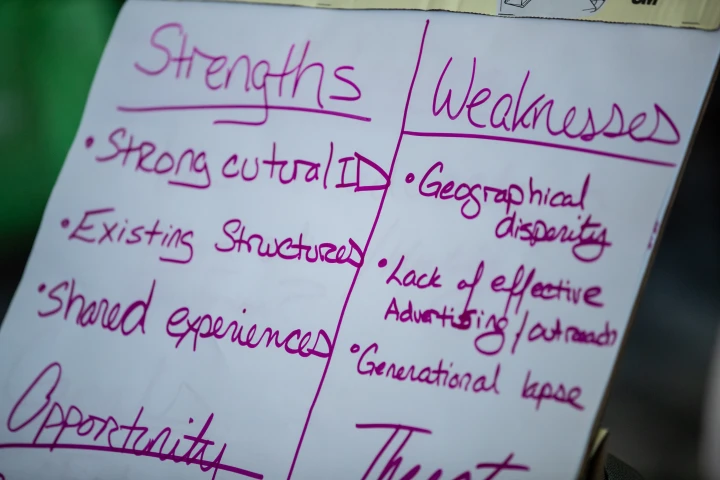 Strengths
• Strong cutural ID
• Existing Structures
• Shared experiences
Opportunity
Weaknesses
• Geographical
disperity
• Lack of effective
Advertising/outreach
• Generational lapse
Threat